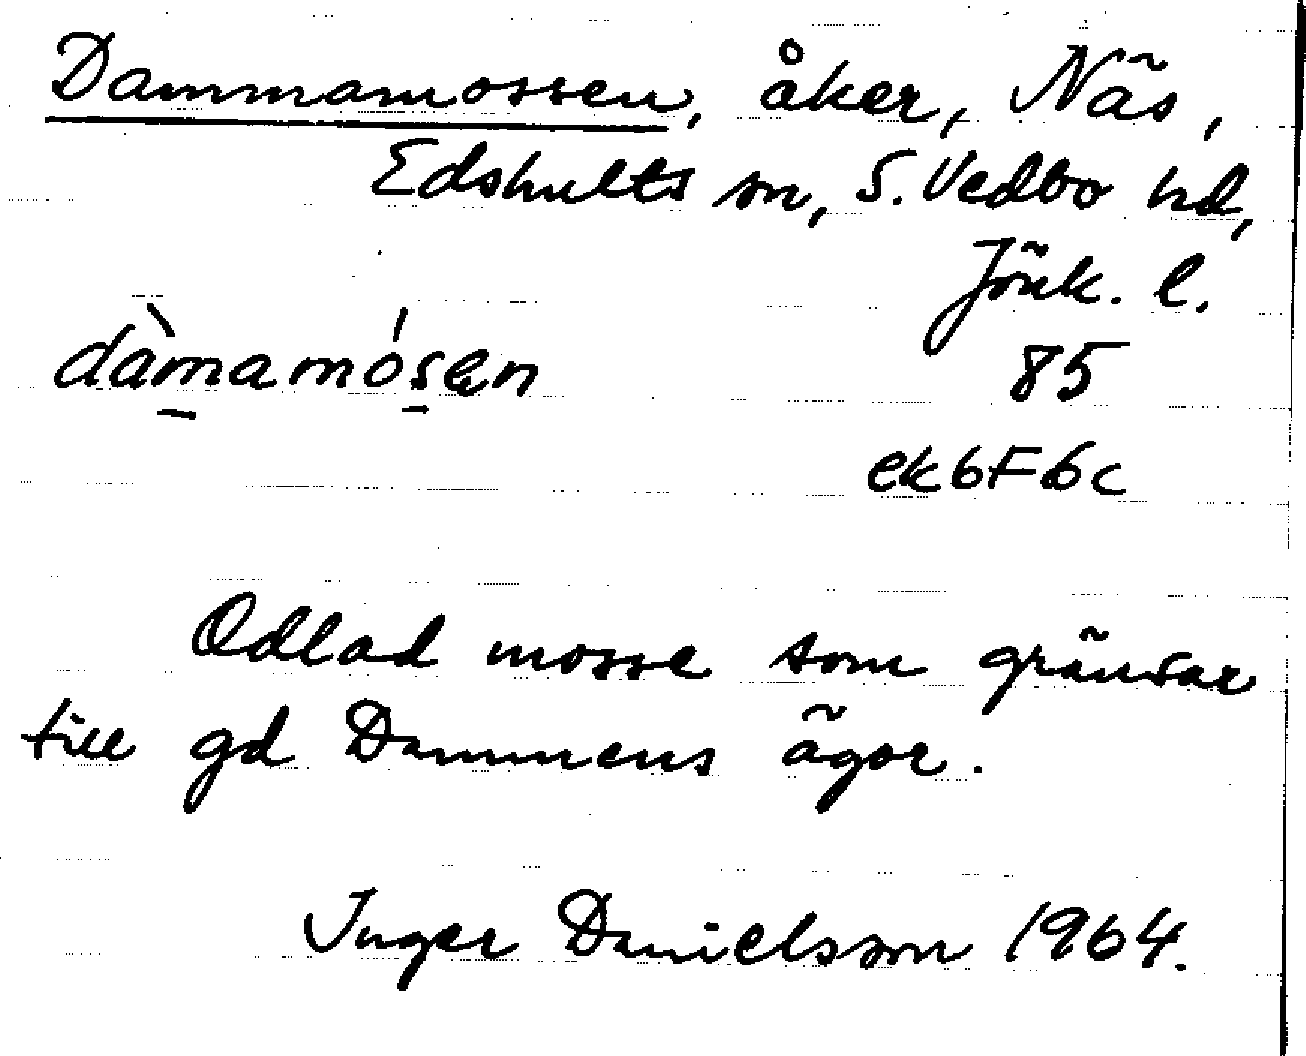 Dammamossen, åker, Näs,
Edshults sn, S. Vedbo hd,
Jönk. l.
dàm̲amós̲en
85
ek6F6c
Odlad mosse som gränsar
till gd Dammens ägor.
Inger Danielsson 1964.